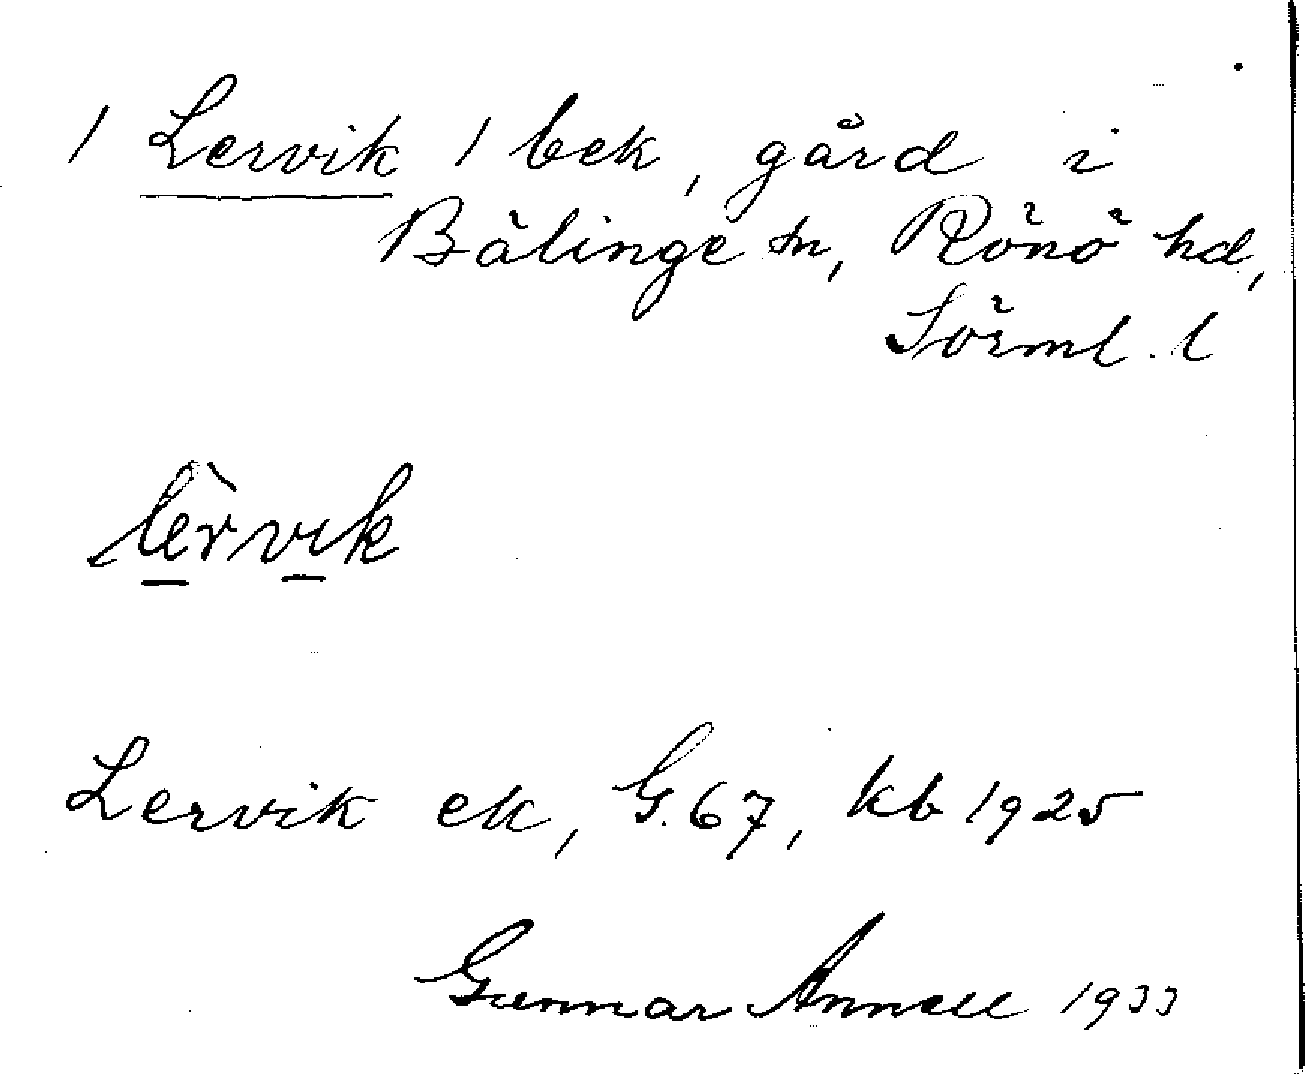 / Lervik / bek, gård i
Bälinge sn, Rönö hd,
Sörml. l
lèrvik
Lervik ek, G.67, kb 1925
Gunnar Annell 1933